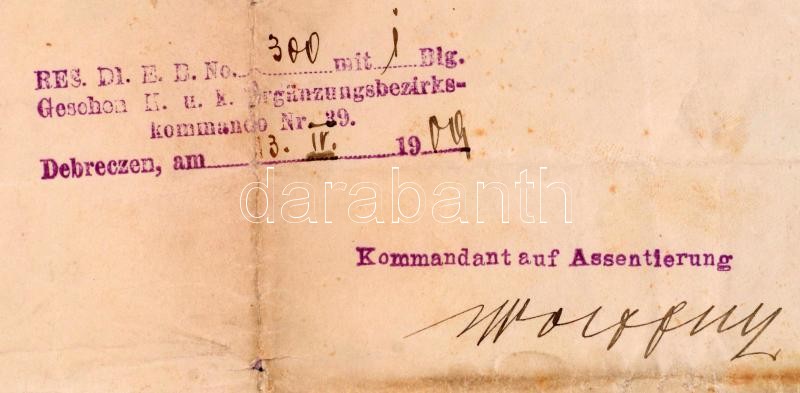 RES. Dl. E. B. No. 300 mit 1 Blg.
Gesehen K. u. k. Ergänzungsbezirks-
kommando Nr. 39.
Debreczen, am 13. IV. 1909
darabanth
Kommandant auf Assentierung